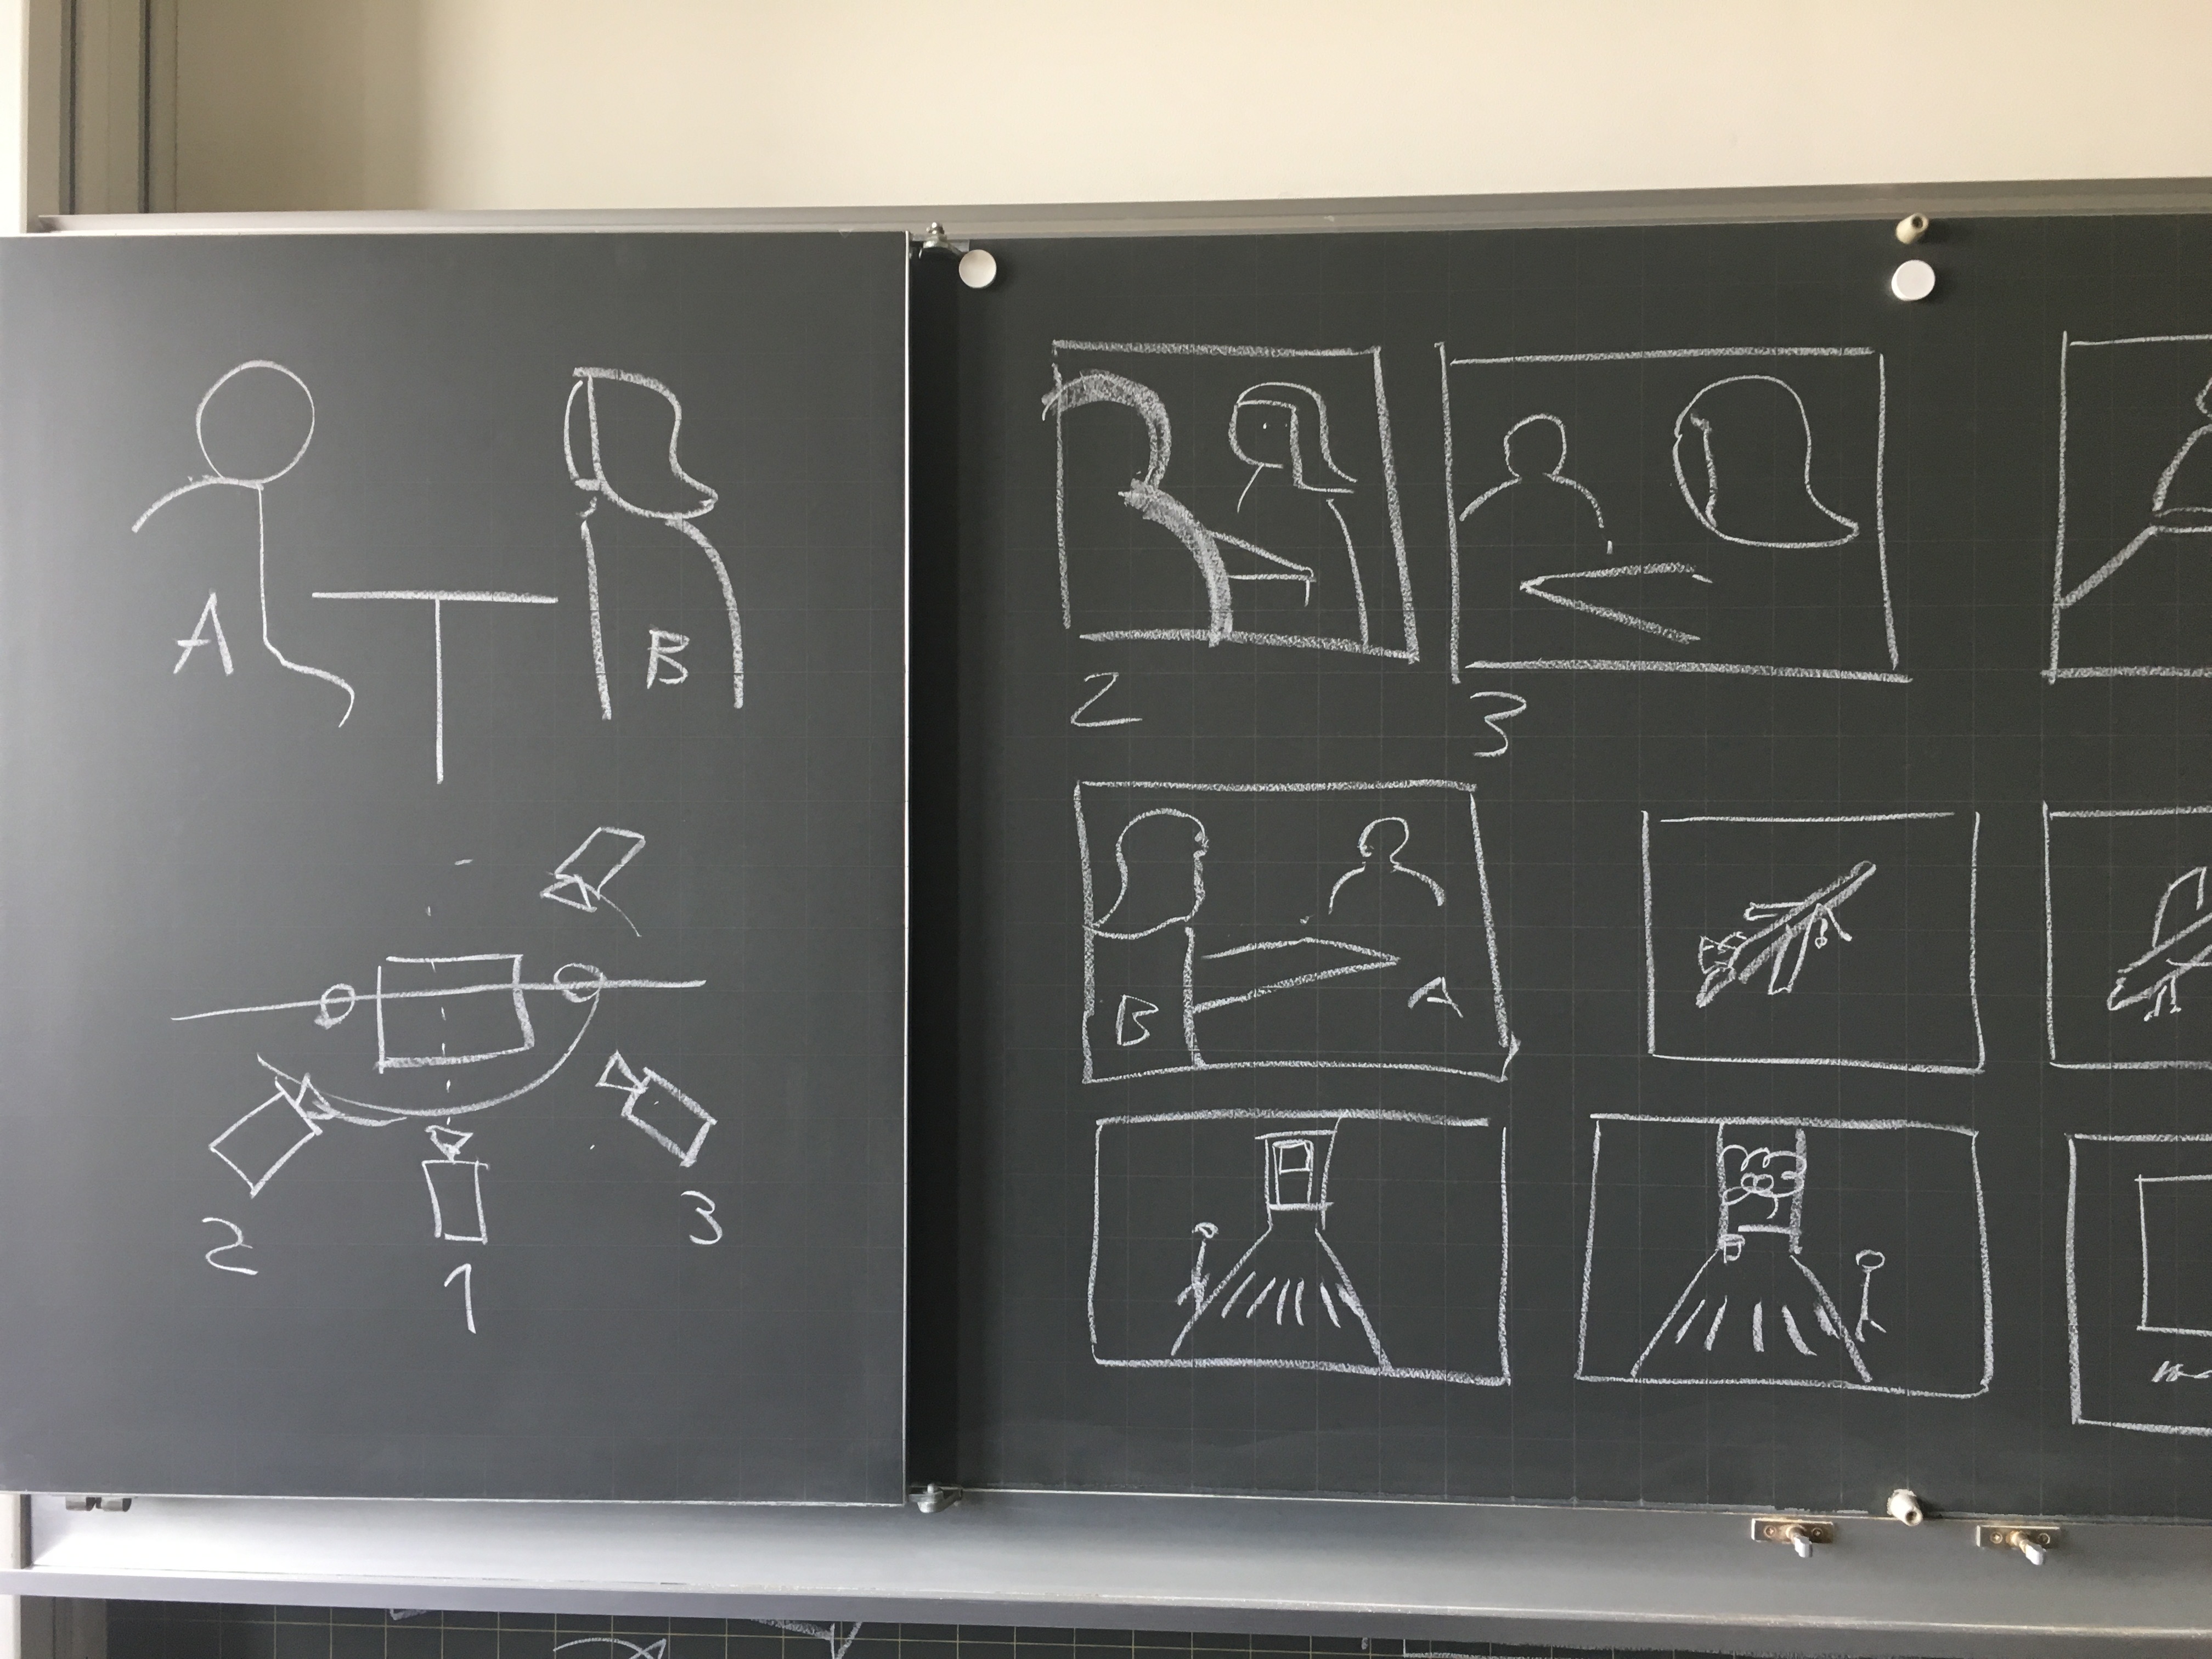 A
B
2
1
3
2
3
B
A